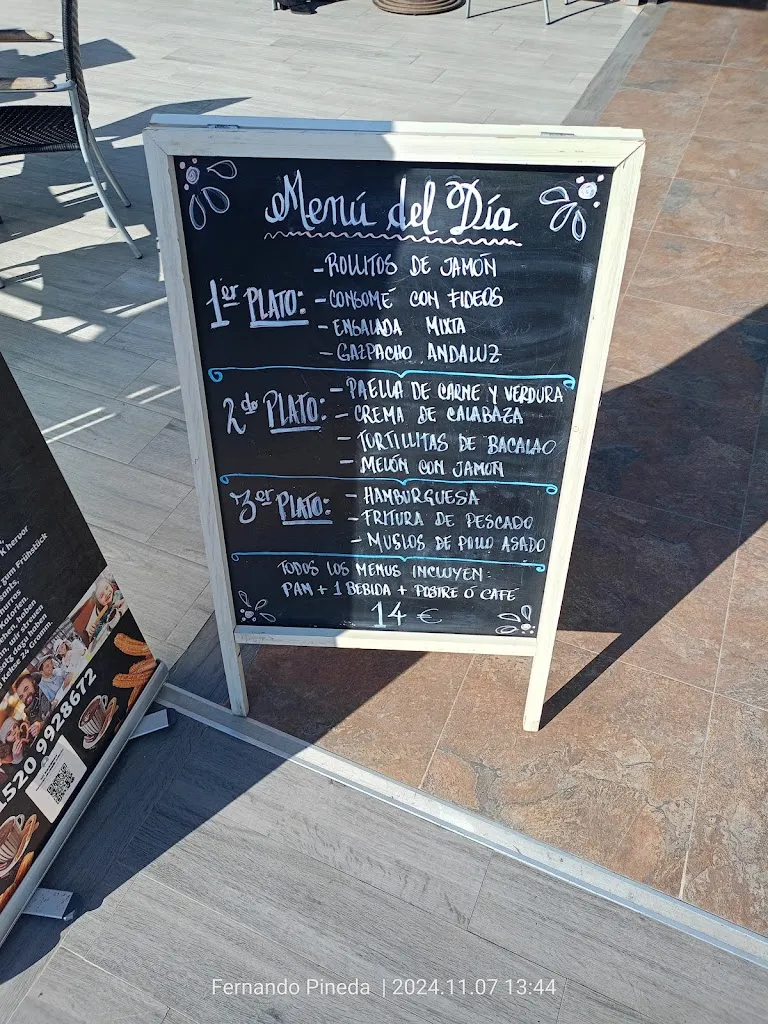 Menú del Día
1er PLATO:
- ROLLITOS DE JAMÓN
- CONSOMÉ CON FIDEOS
- ENSALADA MIXTA
- GAZPACHO ANDALUZ
2do PLATO:
- PAELLA DE CARNE Y VERDURA
- CREMA DE CALABAZA
- TORTILLITAS DE BACALAO
- MELÓN CON JAMON
3er PLATO:
- HAMBURGUESA
- FRITURA DE PESCADO
- MUSLOS DE POLLO ASADO
TODOS LOS MENUS INCLUYEN:
PAN + 1 BEBIDA + POSTRE O CAFE
14 €
K hervor
zum Frühstück
Kalorien.
1520 9928672
Fernando Pineda | 2024.11.07 13:44